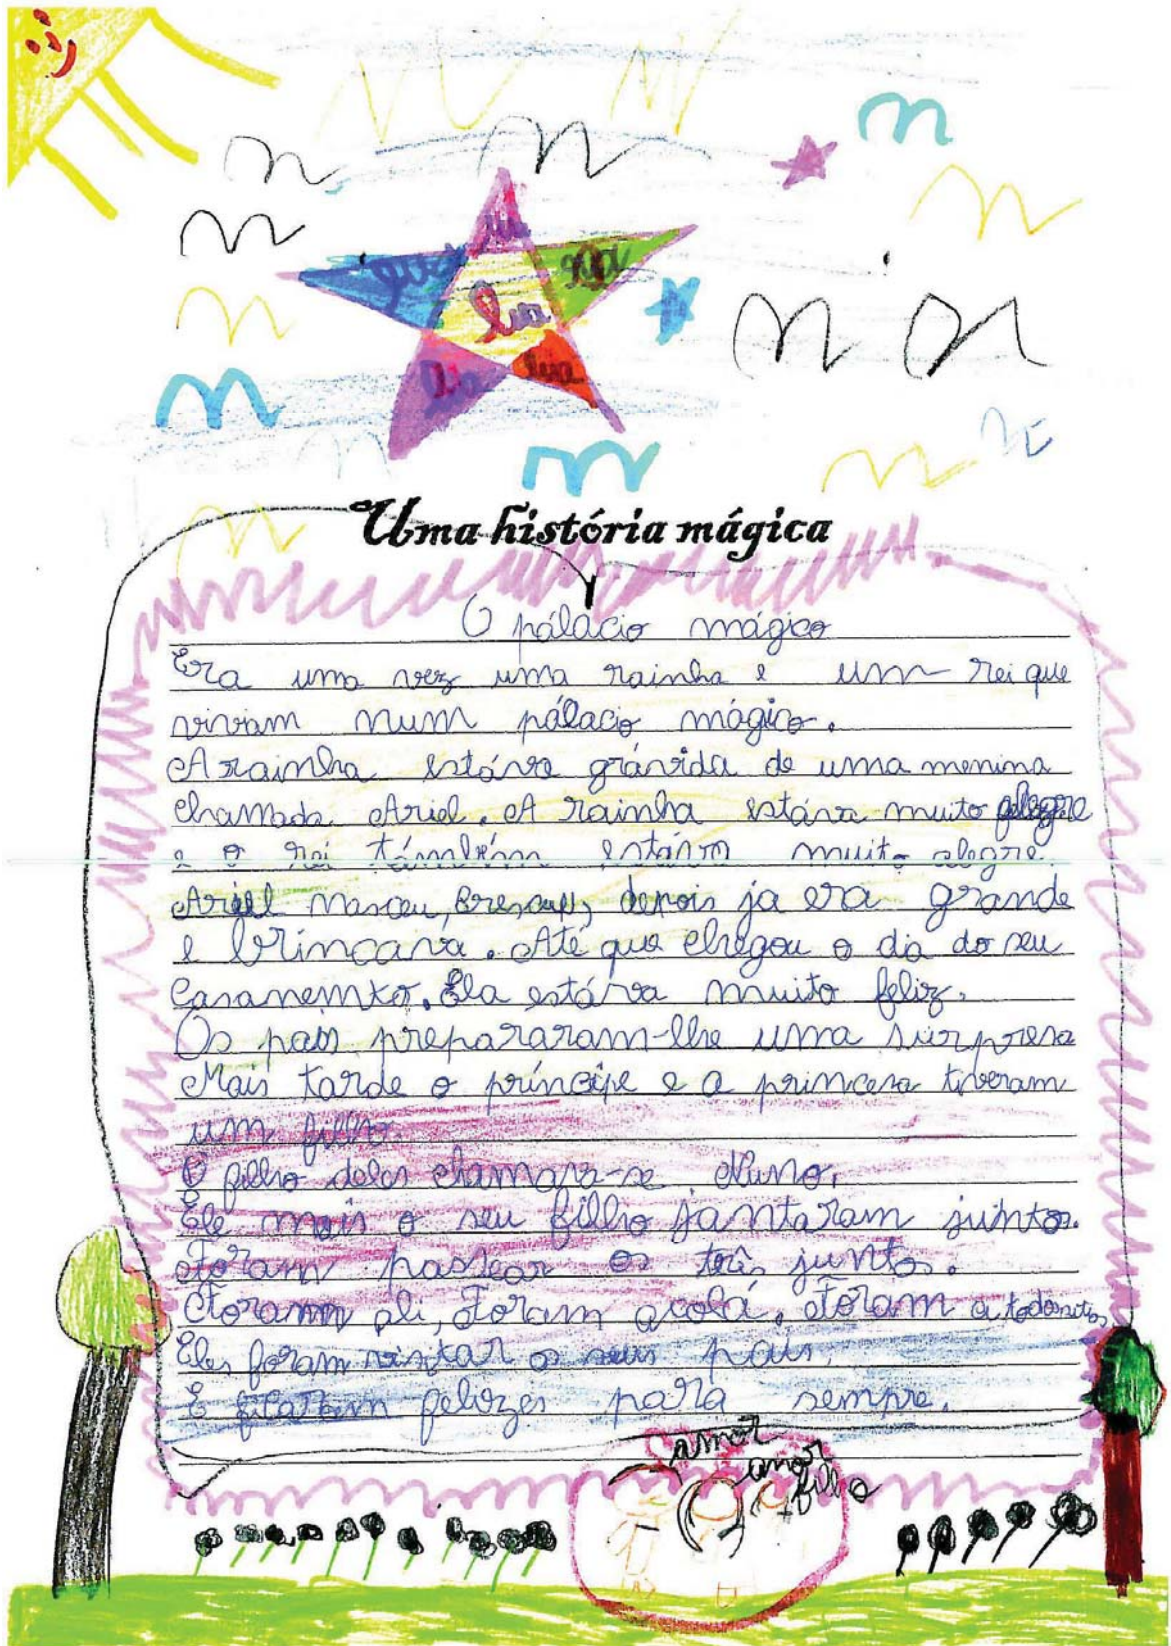 lua
lua
Uma história mágica
O pálácio mágico
Era uma vez uma rainha e um rei que
viviam num pálácio mágico.
A rainha estáva grávida de uma menina
chamada Ariel. A rainha estáva muito alegre
e o rei támbém estáva muito alegre.
Ariel nasceu, cresceu, depois ja era grande
e brincava. Até que chegou o dia do seu
Casanemto. Ela estáva muito feliz.
Os pais prepararam-lhe uma surpresa
Mais tarde o príncipe e a princesa tiveram
um filho.
O filho deles chamava-se Nuno.
Ele mais o seu filho jantaram juntos.
Foram passear os três juntos.
Foram ali, Foram acolá, Foram a todo
Eles foram visitar os seus pais.
E ficaram felizes para sempre.
amor
amor
filho